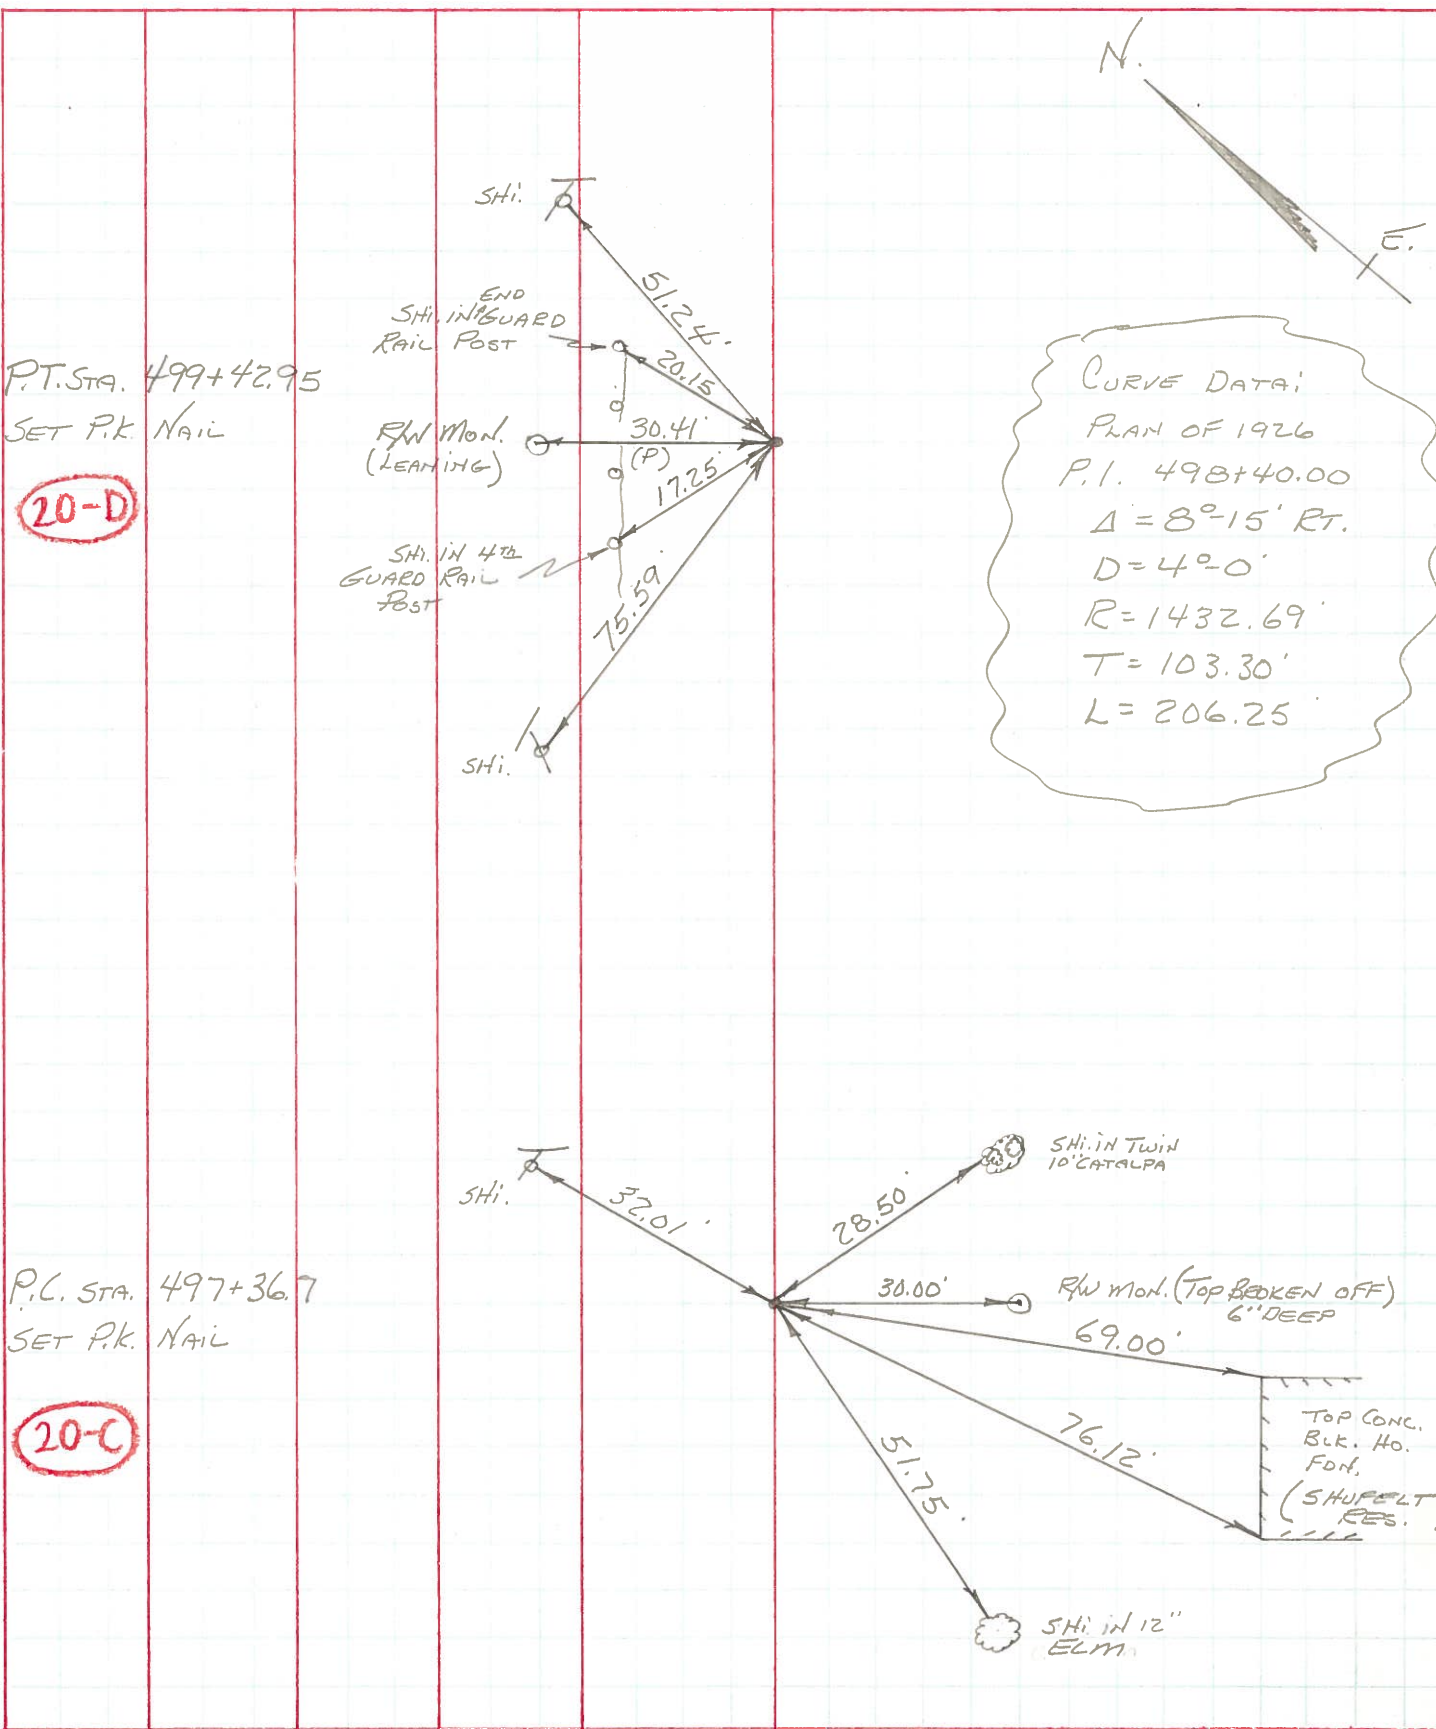 N.
E.
SHi.
51.24'
END
SHi. IN GUARD
RAIL POST
20.15
P.T. STA. 499+42.95
SET P.K. NAIL
20-D
R/W MON.
(LEANING)
30.41'
(P)
17.25'
SHi. IN 4TH
GUARD RAIL
POST
75.59'
SHi.
CURVE DATA:
PLAN OF 1926
P.I. 498+40.00
Δ = 8°-15' RT.
D = 4°-0'
R = 1432.69'
T = 103.30'
L = 206.25'
SHi.
32.01'
28.50'
SHi. IN TWIN
10" CATALPA
P.C. STA. 497+36.7
SET P.K. NAIL
20-C
30.00'
R/W MON. (TOP BROKEN OFF)
6" DEEP
69.00'
76.12'
51.75'
TOP CONC.
BLK. HO.
FDN.
(SHUFELT
RES.
SHi. IN 12"
ELM